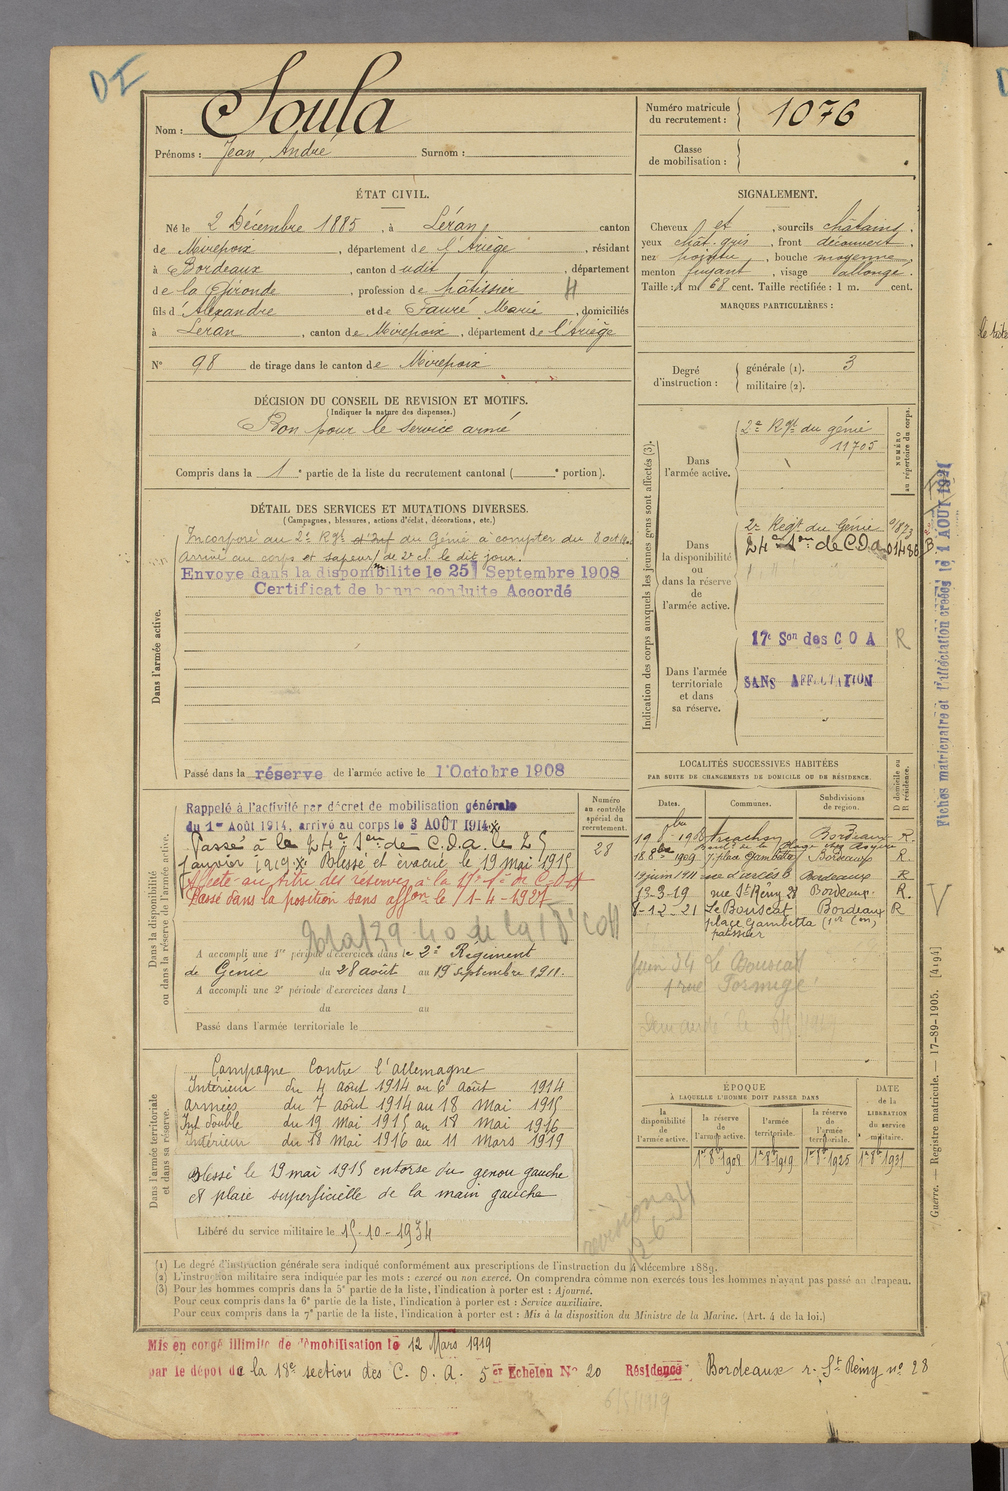 DI
Nom : Soula
Prénoms : Jean, André Surnom :
Numéro matricule
du recrutement : 1076
Classe
de mobilisation :
ÉTAT CIVIL.
Né le 2 Décembre 1885, à Léran, canton
de Mirepoix, département de l'Ariège, résidant
à Bordeaux, canton dudit, département
de la Gironde, profession de pâtissier H
fils d'Alexandre et de Fauré Marie, domiciliés
à Léran, canton de Mirepoix, département de l'Ariège
N° 98 de tirage dans le canton de Mirepoix
DÉCISION DU CONSEIL DE REVISION ET MOTIFS.
(Indiquer la nature des dispenses.)
Bon pour le service armé
Compris dans la 1e partie de la liste du recrutement cantonal ( e portion).
DÉTAIL DES SERVICES ET MUTATIONS DIVERSES.
(Campagnes, blessures, actions d'éclat, décorations, etc.)
Dans l'armée active.
Incorporé au 2e Rgt d'Inf du Génie à compter du 8 oct
Arrivé au corps et sapeur mr de 2e cl. le dit jour.
Envoyé dans la disponibilité le 25 Septembre 1908
Certificat de bonne conduite Accordé
Passé dans la réserve de l'armée active le 1 Octobre 1908
Dans la disponibilité
ou dans la réserve de l'armée active.
Numéro
au contrôle
spécial du
recrutement.
28
Rappelé à l'activité par décret de mobilisation générale
du 1er Août 1914, arrivé au corps le 3 AOÛT 1914 x
Passé à la 24e Son de C.O.A. le 25
janvier 1919 x Blessé et évacué le 19 mai 1915
Affecté au titre des réserves à la 17e Son de C.O.A
Passé dans la position sans affon le 1-4-1927
A accompli une 1re période d'exercices dans le 2e Régiment
de Génie du 28 août au 19 septembre 1911.
A accompli une 2e période d'exercices dans l
du au
Passé dans l'armée territoriale le
Dans l'armée territoriale
et dans sa réserve.
Campagne contre l'Allemagne
Intérieur du 4 août 1914 au 6 août 1914
Armées du 7 août 1914 au 18 Mai 1915
Int double du 19 Mai 1915 au 18 Mai 1916
Intérieur du 18 Mai 1916 au 11 Mars 1919
Blessé le 19 mai 1915 entorse du genou gauche
et plaie superficielle de la main gauche
Libéré du service militaire le 15-10-1934
SIGNALEMENT.
Cheveux et, sourcils châtains,
yeux chât-gris, front découvert,
nez pointu, bouche moyenne,
menton fuyant, visage allongé.
Taille : 1 m 68 cent. Taille rectifiée : 1 m. cent.
MARQUES PARTICULIÈRES :
Degré
d'instruction :
générale (1). 3
militaire (2).
Indication des corps auxquels les jeunes gens sont affectés (3).
NUMÉRO
au répertoire du corps.
Dans
l'armée active.
2e Rgt du génie
11705
Dans
la disponibilité
ou
dans la réserve
de
l'armée active.
2e Régt du Génie
24e Son de C.O.A.
Dans l'armée
territoriale
et dans
sa réserve.
17e Son des C O A R
SANS AFFECTATION
Fiches matriculaire et d'affectation créées le 1 AOUT 1921
LOCALITÉS SUCCESSIVES HABITÉES
PAR SUITE DE CHANGEMENTS DE DOMICILE OU DE RÉSIDENCE.
Dates. Communes. Subdivisions
de région.
D domicile ou
R résidence.
Arcachon Bordeaux R.
18 8bre 1909 7, place Gambetta Bordeaux R.
19 juin 1911 Bordeaux R
13-3-19 rue St Rémy 28 Bordeaux. R.
8-12-21 Le Bouscat Bordeaux R
place Gambetta
patissier
V
Juin 34 Le Bouscat
1 rue Formigé
ÉPOQUE
À LAQUELLE L'HOMME DOIT PASSER DANS
la
disponibilité
de
l'armée active.
la réserve
de
l'armée active.
l'armée
territoriale.
la réserve
de
l'armée
territoriale.
DATE
de la
LIBÉRATION
du service
militaire.
1er 8b 1908 1er 8b 1919 1er 8b 1925 1er 8b 1931
révision 34
12-6-34
Guerre. — Registre matricule. — 17-89-1905. [4194]
(1) Le degré d'instruction générale sera indiqué conformément aux prescriptions de l'instruction du 4 décembre 1889.
(2) L'instruction militaire sera indiquée par les mots : exercé ou non exercé. On comprendra comme non exercés tous les hommes n'ayant pas passé au drapeau.
(3) Pour les hommes compris dans la 5e partie de la liste, l'indication à porter est : Ajourné.
Pour ceux compris dans la 6e partie de la liste, l'indication à porter est : Service auxiliaire.
Pour ceux compris dans la 7e partie de la liste, l'indication à porter est : Mis à la disposition du Ministre de la Marine. (Art. 4 de la loi.)
Mis en congé illimité de démobilisation le 12 Mars 1919
par le dépot de la 18e section des C. O. A. 5er Echelon N° 20 Résidence Bordeaux r. St Rémy no 28
6/5/1919